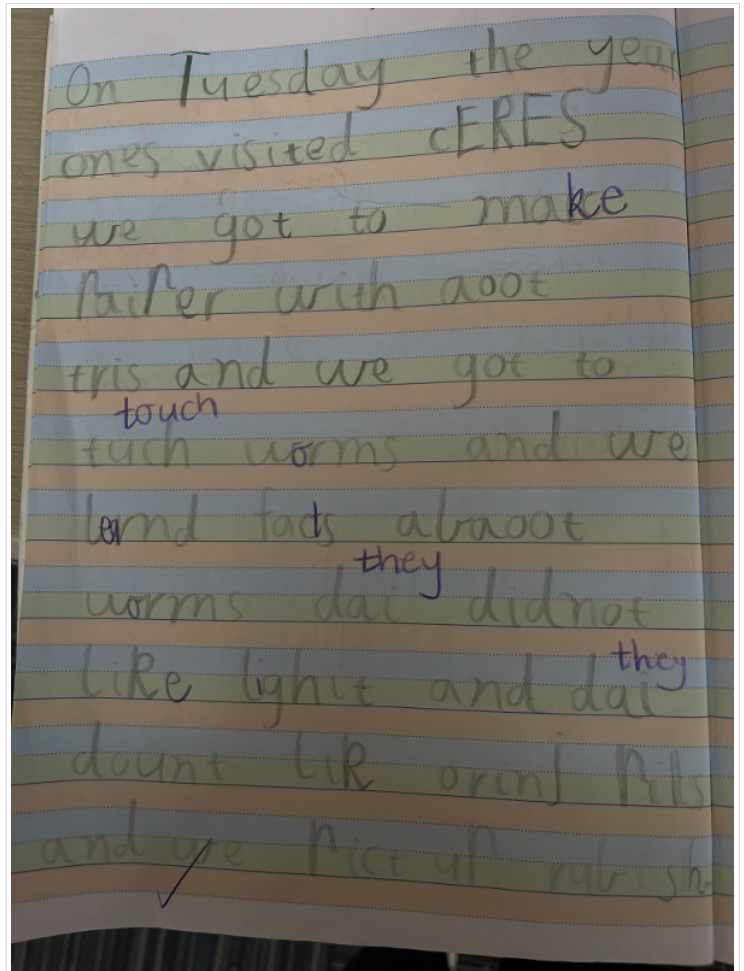 On Tuesday the year
ones visited cERES
we got to make
Paiper with aoot
tris and we got to
touch
tuch worms and we
lernd facts abaoot
they
worms dai didnot
they
like lighit and dai
dount liK orinj Pils
and we Pict uP rubish